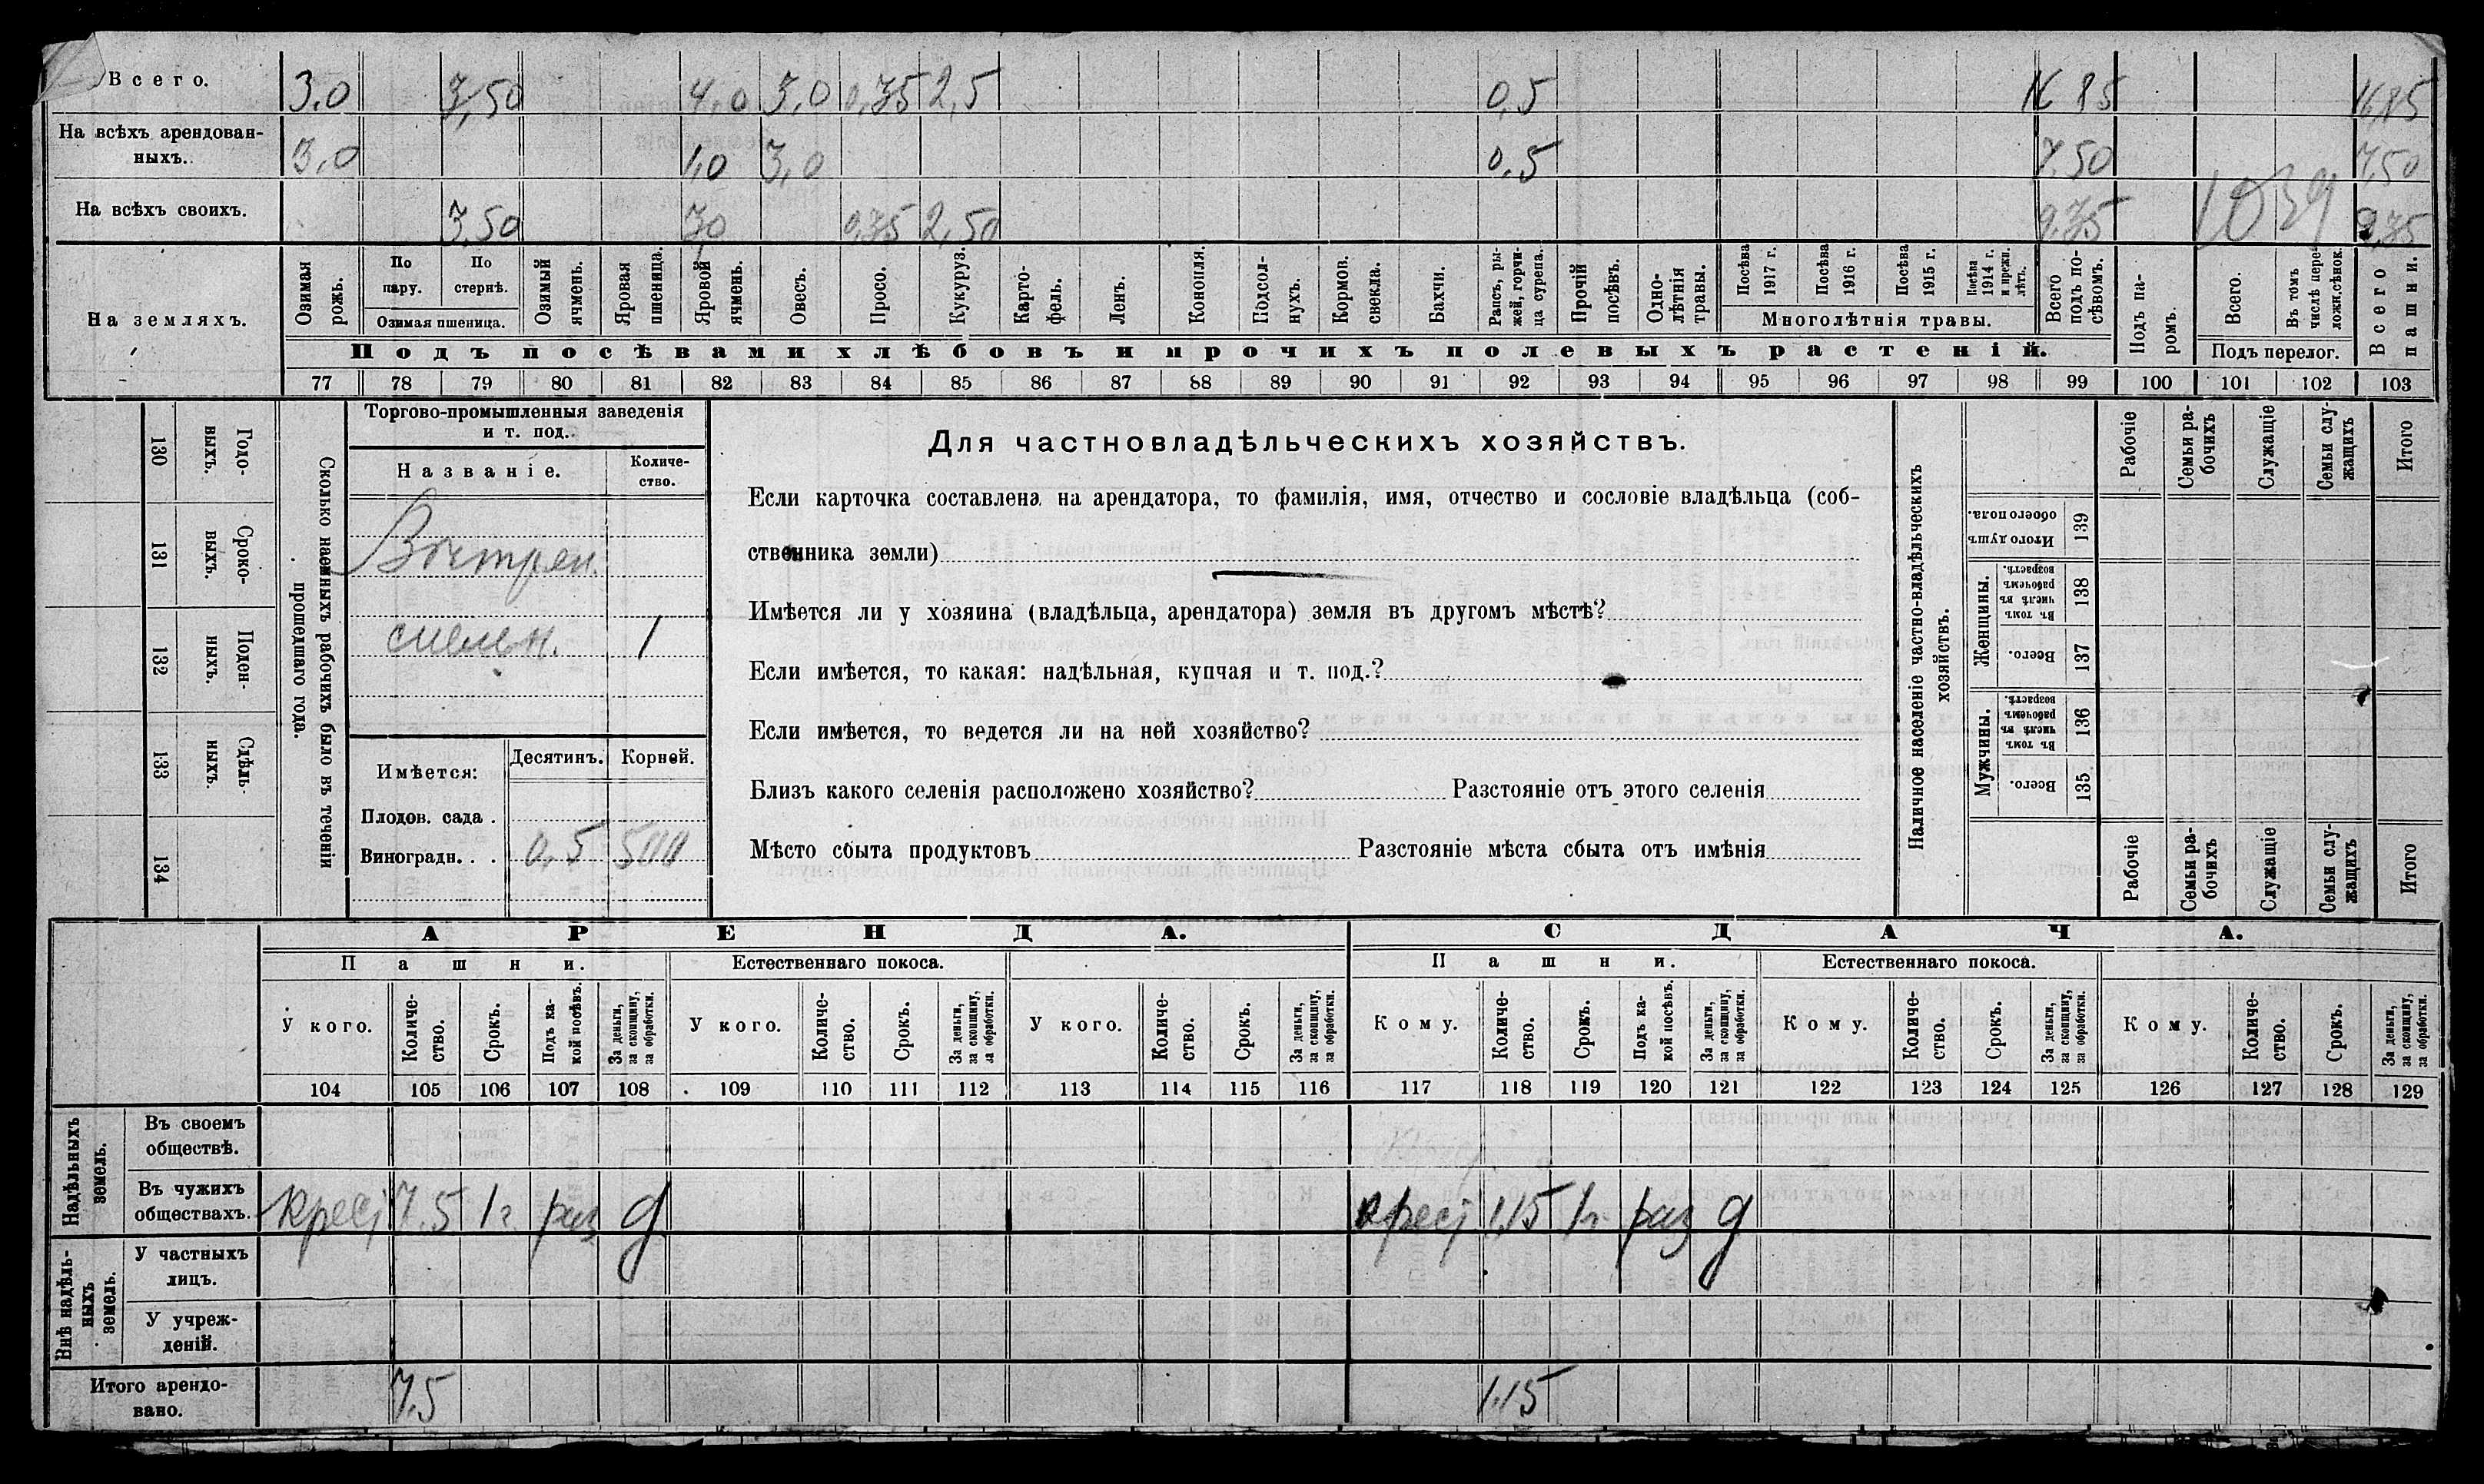 Всего. 3,0 3,50 4,0 3,0 0,35 2,5 0,5 16 85 16,85
На всѣхъ арендован-
ныхъ. 3,0 1,0 3,0 0,5 7,50 7,50
На всѣхъ своихъ. 3,50 0,35 2,50 9,35 1039 9,35
На земляхъ.
Озимая рожь.
По пару.
По стернѣ.
Озимая пшеница.
Озимый ячмень.
Яровая пшеница.
Яровой ячмень.
Овесъ.
Просо.
Кукуруз.
Карто-
фель.
Ленъ.
Конопля.
Подсол-
нухъ.
Кормов.
свекла.
Бахчи.
Рапсъ, ры-
жей, горчи-
ца сурепа.
Прочій
посѣвъ.
Одно-
лѣтнія
травы.
Посѣва 1917 г.
Посѣва 1916 г.
Посѣва 1915 г.
Посѣва 1914 г. и прежн. лѣтъ.
Многолѣтнія травы.
Всего подъ по-
сѣвомъ.
Подъ па-
ромъ.
Всего.
Въ томъ числѣ пере-
ложн. сѣнок.
Подъ перелог.
Всего пашни.
Подъ посѣвами хлѣбовъ и прочихъ полевыхъ растеній.
77 78 79 80 81 82 83 84 85 86 87 88 89 90 91 92 93 94 95 96 97 98 99 100 101 102 103
130 Годо-
выхъ.
131 Сроко-
выхъ.
132 Поден-
ныхъ.
133 Сдѣль-
ныхъ.
134
Сколько наемныхъ рабочихъ было въ теченіи
прошедшаго года.
Торгово-промышленныя заведенія
и т. под.
Названіе.
Количе-
ство.
1
Имѣется:
Десятинъ. Корней.
Плодов. сада .
Виноградн. . . 0,5 500
Для частновладѣльческихъ хозяйствъ.
Если карточка составлена на арендатора, то фамилія, имя, отчество и сословіе владѣльца (соб-
ственника земли)
Имѣется ли у хозяина (владѣльца, арендатора) земля въ другомъ мѣстѣ?
Если имѣется, то какая: надѣльная, купчая и т. под.?
Если имѣется, то ведется ли на ней хозяйство?
Близъ какого селенія расположено хозяйство? Разстояніе отъ этого селенія
Мѣсто сбыта продуктовъ Разстояніе мѣста сбыта отъ имѣнія
Наличное населеніе частно-владѣльческихъ
хозяйствъ.
Рабочіе
Семьи ра-
бочихъ
Служащіе
Семьи слу-
жащихъ
Итого
Итого душъ
обоего пола. 139
Женщины.
Въ томъ числѣ въ рабочемъ возрастѣ. 138
Всего. 137
Мужчины.
Въ томъ числѣ въ рабочемъ возрастѣ. 136
Всего. 135
Рабочіе
Семьи ра-
бочихъ
Служащіе
Семьи слу-
жащихъ
Итого
АРЕНДА. СДАЧА.
Пашни. Естественнаго покоса. Пашни. Естественнаго покоса.
У кого.
Количе-
ство.
Срокъ.
Подъ ка-
кой посѣвъ.
За деньги,
за скопщину,
за обработки.
У кого.
Количе-
ство.
Срокъ.
За деньги,
за скопщину,
за обработки.
У кого.
Количе-
ство.
Срокъ.
За деньги,
за скопщину,
за обработки.
Кому.
Количе-
ство.
Срокъ.
Подъ ка-
кой посѣвъ.
За деньги,
за скопщину,
за обработки.
Кому.
Количе-
ство.
Срокъ.
За деньги,
за скопщину,
за обработки.
Кому.
Количе-
ство.
Срокъ.
За деньги,
за скопщину,
за обработки.
104 105 106 107 108 109 110 111 112 113 114 115 116 117 118 119 120 121 122 123 124 125 126 127 128 129
Надѣльныхъ
земель.
Въ своемъ
обществѣ.
Въ чужихъ
обществахъ. крест 7.5 1 г. раз д крест 1,15 1 г. раз д
Внѣ надѣль-
ныхъ
земель.
У частныхъ
лицъ.
У учреж-
деній.
Итого арендо-
вано. 7,5 1,15